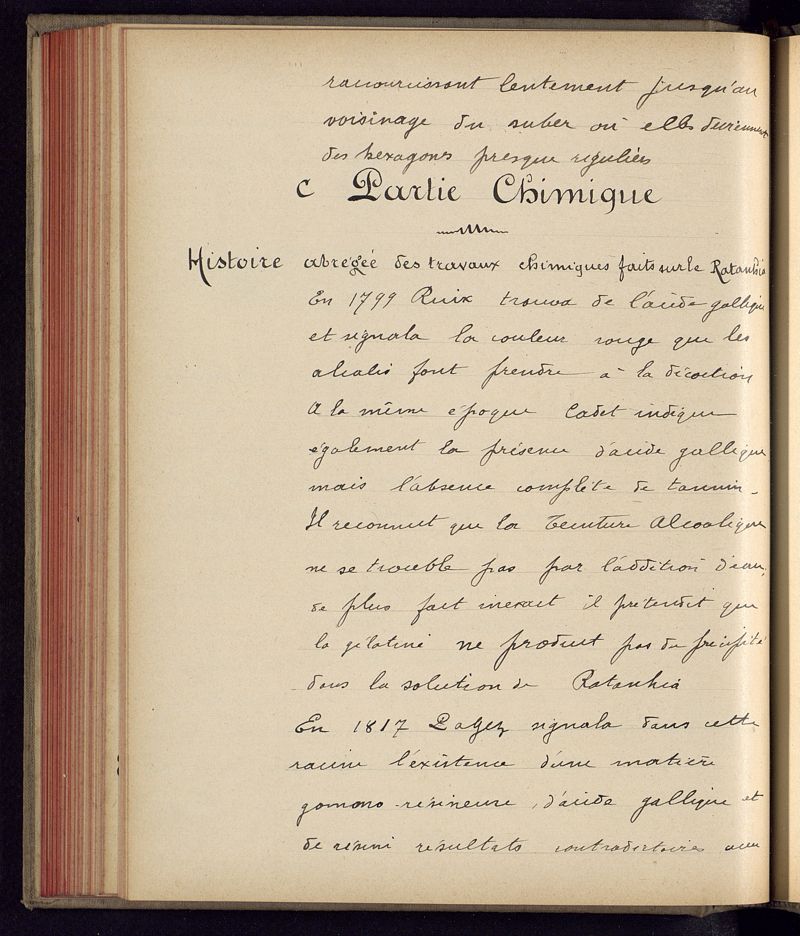 raccourcissant lentement jusqu'au
voisinage du suber où elles deviennent
des hexagones presque réguliers
C Partie Chimique
Histoire abrégée des travaux chimiques faits sur le Ratanhia
En 1799 Ruix trouva de l'acide gallique
et signala la couleur rouge que les
alcalis font prendre à la décoction
A la même époque Cadet indique
également la présence d'acide gallique
mais l'absence complète de tannin.
Il reconnut que la teinture Alcoolique
ne se trouble pas par l'addition d'eau,
de plus fait inexact il prétendit que
la gélatine ne produit pas de précipité
dans la solution de Ratanhia
En 1817 signala dans cette
racine l'existence d'une matière
gommo-résineuse, d'acide gallique et
de résine résultats contradictoires avec